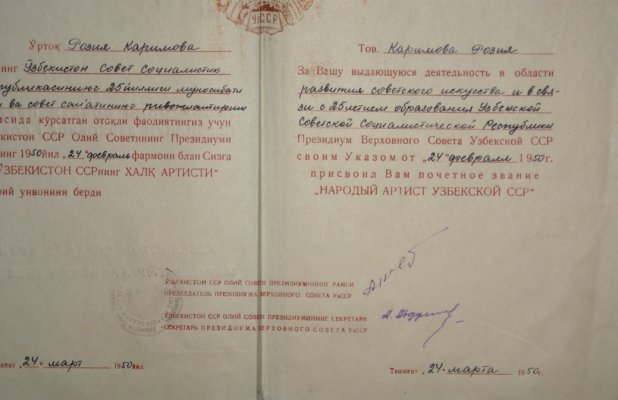 УзССР
Ўртоқ Розия Каримова
нинг Ўзбекистон Совет Социалистик
публикасининг 25 йиллиги муносабати
ва совет санъатининг ривожлантириш
сида кўрсатган отоқли фаолиятингиз учун
кистон ССР Олий Советининг Президиуми
нинг 1950 йил „24" февраль фармони блан Сизга
ЎЗБЕКИСТОН ССРнинг ХАЛҚ АРТИСТИ"
рий унвонини берди
Тов. Каримова Розия
За Вашу выдающуюся деятельность в области
развития советского искусства и в свя-
зи с 25 летием образования Узбекской
Советской Социалистической Республики
Президиум Верховного Совета Узбекской ССР
своим Указом от „24" февраля 1950 г.
присвоил Вам почетное звание
„НАРОДЫЙ АРТИСТ УЗБЕКСКОЙ ССР"
ЎЗБЕКИСТОН ССР ОЛИЙ СОВЕТИ ПРЕЗИДИУМИНИНГ РАИСИ
ПРЕДСЕДАТЕЛЬ ПРЕЗИДИУМА ВЕРХОВНОГО СОВЕТА УзССР
ЎЗБЕКИСТОН ССР ОЛИЙ СОВЕТИ ПРЕЗИДИУМИНИНГ СЕКРЕТАРИ
СЕКРЕТАРЬ ПРЕЗИДИУМА ВЕРХОВНОГО СОВЕТА УзССР
Ташкент „24" март 1950 йил
Ташкент, „24" марта 1950 г.